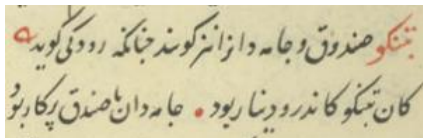 تبنکو صندوق و جامه دانرا نیز کویند چنانکه رودکی کوید
کان تبنکو کاندرو دینار بود جامه دان یا صندق پرکار بود